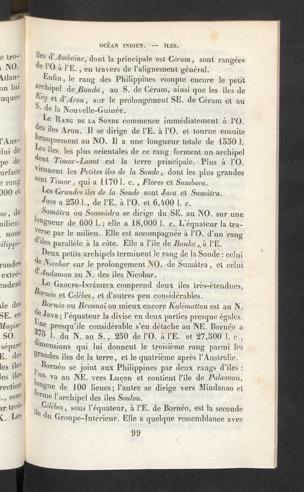 OCÉAN INDIEN. — ILES.
îles d'Amboine, dont la principale est Céram, sont rangées
de l'O à l'E., en travers de l'alignement général.
Enfin, le rang des Philippines compte encore le petit
archipel de Banda, au S. de Céram, ainsi que les îles de
Key et d'Arou, sur le prolongement SE. de Céram et au
S. de la Nouvelle-Guinée.
Le RANG DE LA SONDE commence immédiatement à l'O.
des îles Arou. Il se dirige de l'E. à l'O. et tourne ensuite
brusquement au NO. Il a une longueur totale de 1550 l.
Les îles, les plus orientales de ce rang forment un archipel
dont Timor-Laout est la terre principale. Plus à l'O.
viennent les Petites îles de la Sonde, dont les plus grandes
sont Timor, qui a 1170 l. c., Flores et Sumbava.
Les Grandes îles de la Sonde sont Java et Somâtra.
Java a 250 l., de l'E. à l'O. et 6,400 l. c.
Somâtra ou Soumâdra se dirige du SE. au NO. sur une
longueur de 600 l. ; elle a 18,000 l. c. L'équateur la tra-
verse par le milieu. Elle est accompagnée à l'O. d'un rang
d'îles parallèle à la côte. Elle a l'île de Banka, à l'E.
Deux petits archipels terminent le rang de la Sonde : celui
de Nicobar sur le prolongement NO. de Sumâtra, et celui
d'Andaman au N. des îles Nicobar.
Le GROUPE-INTÉRIEUR comprend deux îles très-étendues,
Bornéo et Célèbes, et d'autres peu considérables.
Bornéo ou Brounaï ou mieux encore Kalémattan est au N.
de Java ; l'équateur la divise en deux parties presque égales.
Une presqu'île considérable s'en détache au NE. Bornéo a
275 l. du N. au S., 250 de l'O. à l'E. et 27,500 l. c.,
dimensions qui lui donnent le troisième rang parmi les
grandes îles de la terre, et le quatrième après l'Australie.
Bornéo se joint aux Philippines par deux rangs d'îles :
l'un va au NE. vers Luçon et contient l'île de Palaouan,
longue de 100 lieues ; l'autre se dirige vers Mindanao et
forme l'archipel des îles Soulou.
Célèbes, sous l'équateur, à l'E. de Bornéo, est la seconde
île du Groupe-Intérieur. Elle a quelque ressemblance avec
99